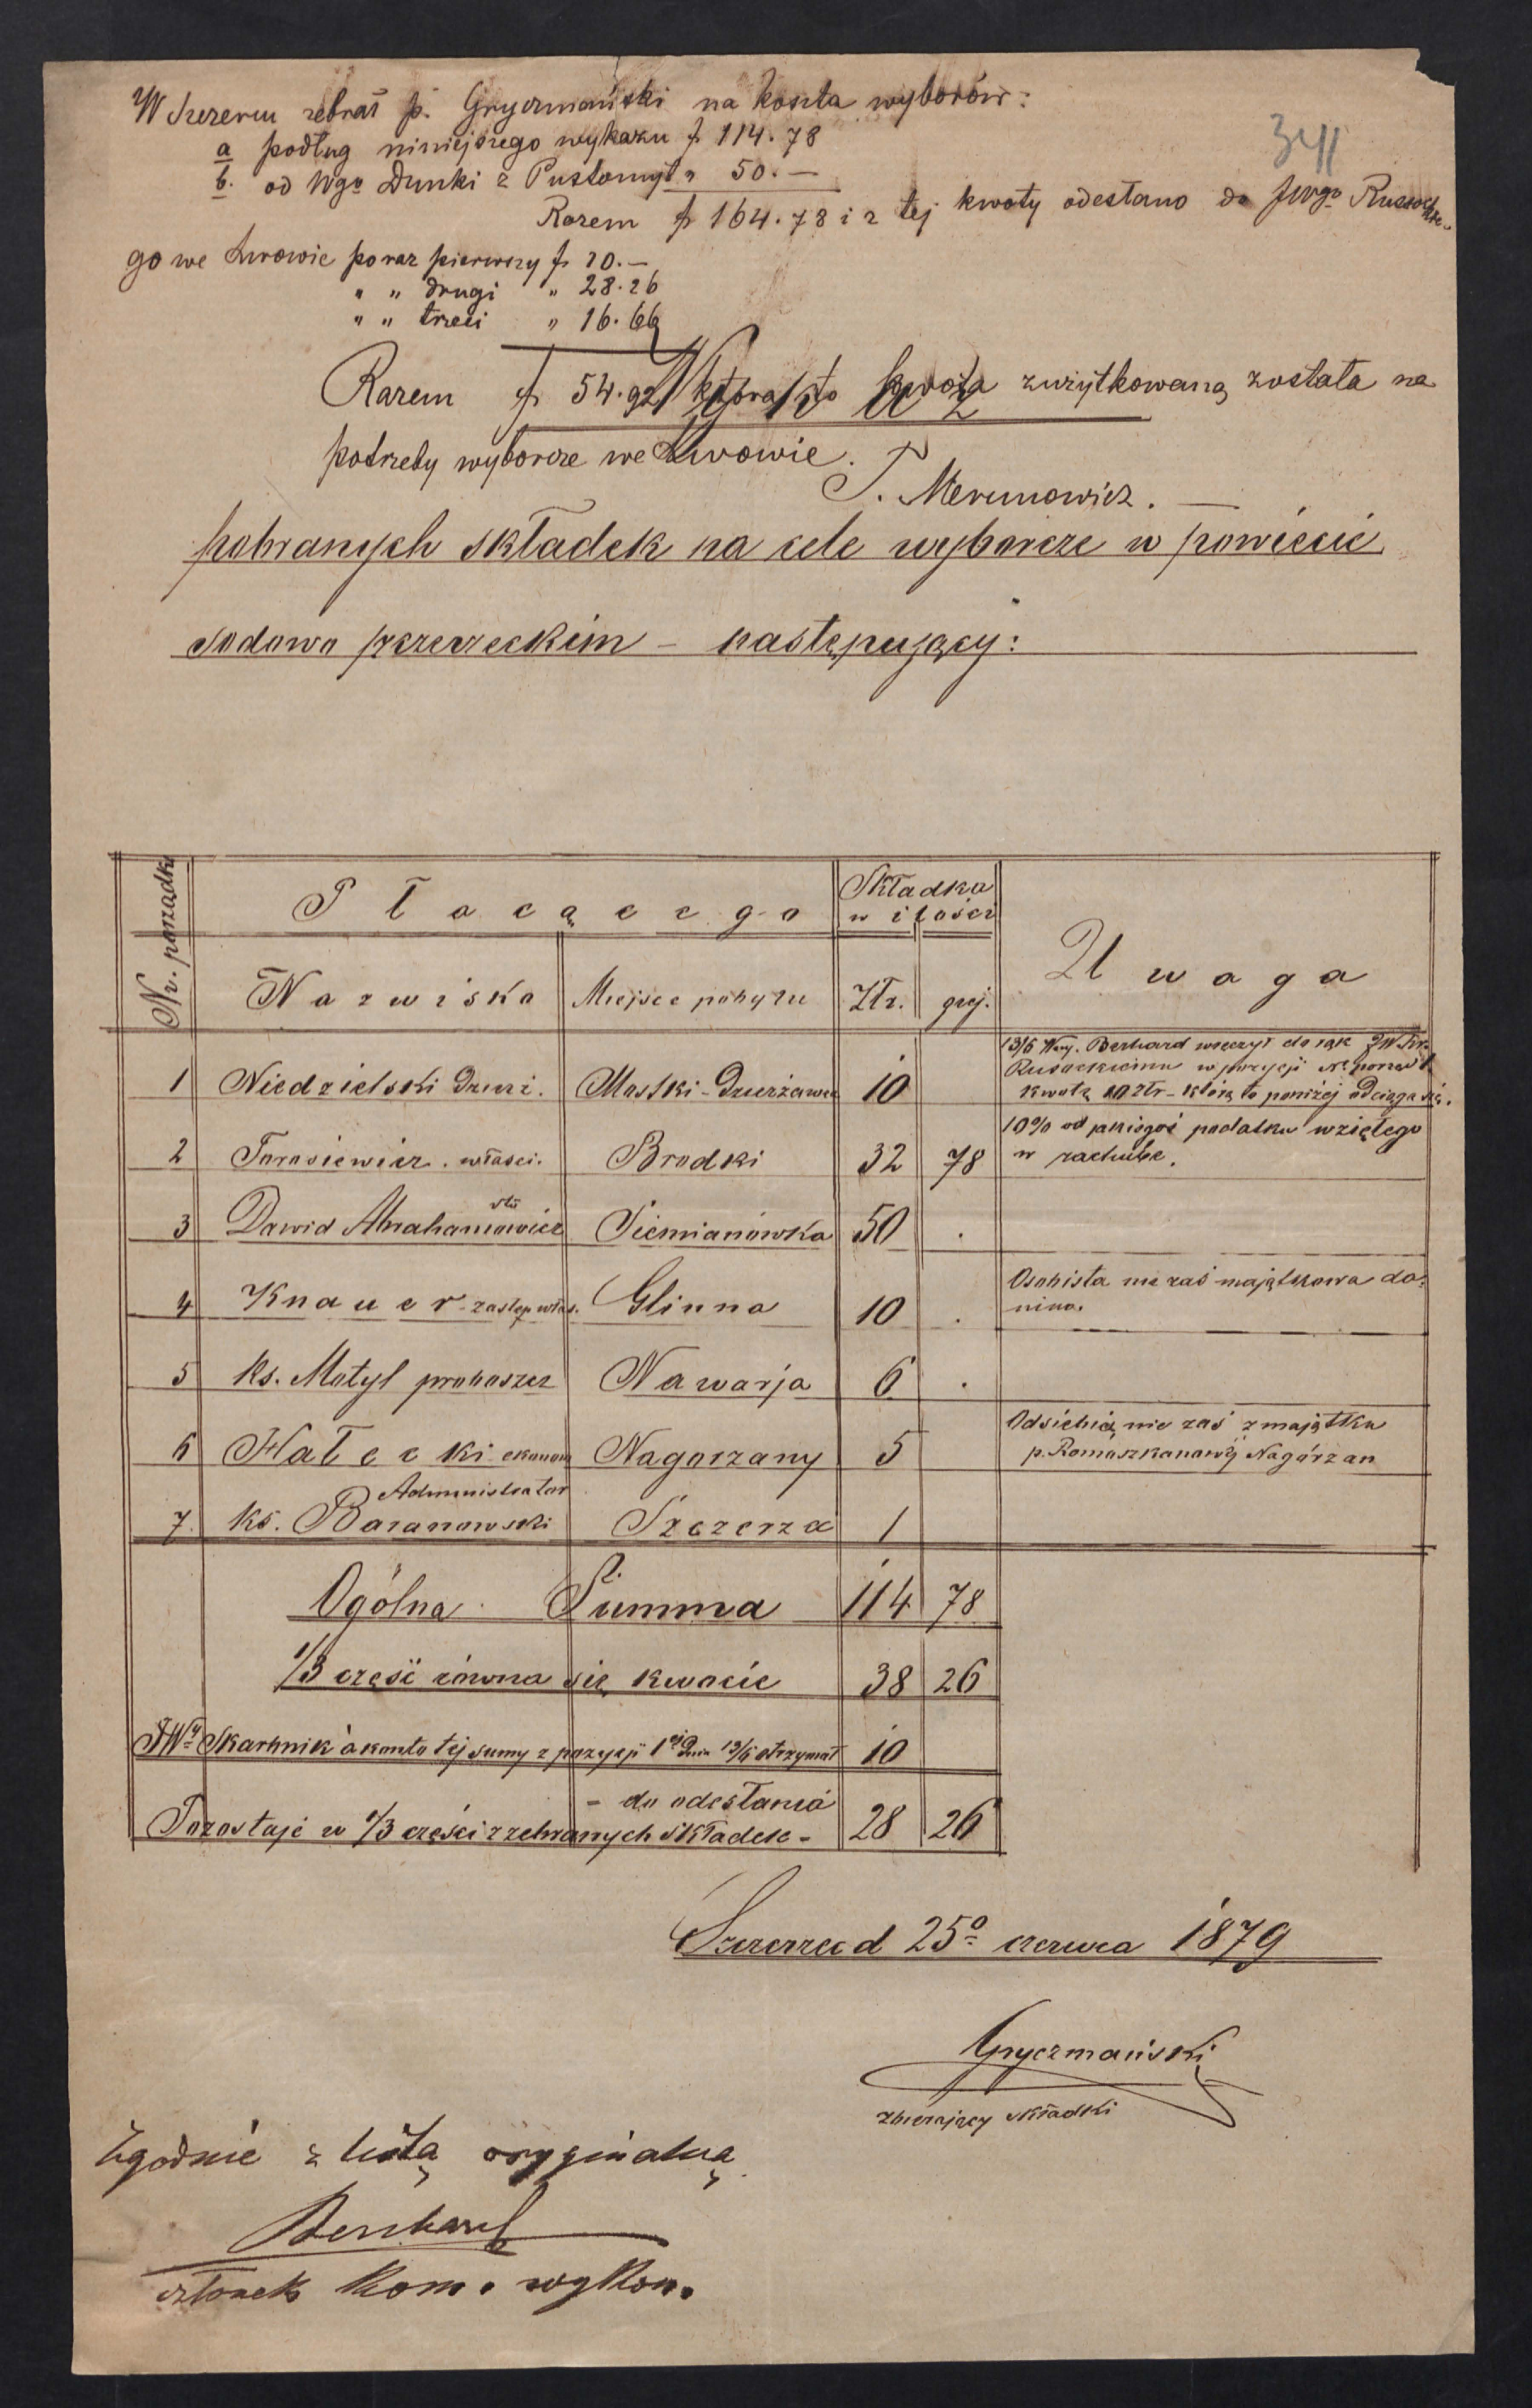 W Szczercu zebrał p. Gryczmański na koszta wyborów:
a podług niniejszego wykazu f 114.78
b. od Wgo Dunki z Pustomyt " 50.—
Razem f 164.78 i z tej kwoty odesłano do JWgo Russockie-
341
go we Lwowie po raz pierwszy f 10.—
" " drugi " 28.26
" " trzeci " 16.66
Razem f 54.92 która to kwota zużytkowaną została na
potrzeby wyborcze we Lwowie.
T. Merunowicz.
pobranych składek na cele wyborcze w powiecie
sodowo szczerzeckim – następujący:
Nr. porządk.
Płacącego
Składka
w ilości
Uwaga
Nazwisko
Miejsce pobytu
Złr. grj.
1 Niedzielski Dzierż. Mostki-Dzierżawca 10
13/6 Wny. Berhard wręczył do rąk JW.
Rusockiemu w pozycji
kwotę 10 złr – którą to poniżej odciąga się.
2 Tarasiewicz. właści. Brodki 32 78
10% od jakiegoś podatku wziętego
w rachubę.
3 Dawid Abrahamowicz Siemianówka 50 .
4 Knauer – zastęp. włas. Glinna 10 .
Osobista nie zaś majątkowa da-
nina.
5 ks. Motyl proboszcz Nawarja 6 .
6 Hałecki ekonom Nagorzany 5
Od siebie, nie zaś z majątku
p. Romaszkanowej Nagórzan
Administrator
7. ks. Baranowski Szczerza 1
Ogólna Summa 114 78
1/3 część równa się kwocie 38 26
JWy Skarbnik à konto tej sumy z pozycji 1ej Dnia 13/6 otrzymał 10
– do odesłania
Pozostaje w 1/3 części z zebranych składek – 28 26
Szczerzec d 25o czerwca 1879
Gryczmański
zbierający składki
Zgodnie z listą oryginalną.
Berhard
członek Kom. wykon.